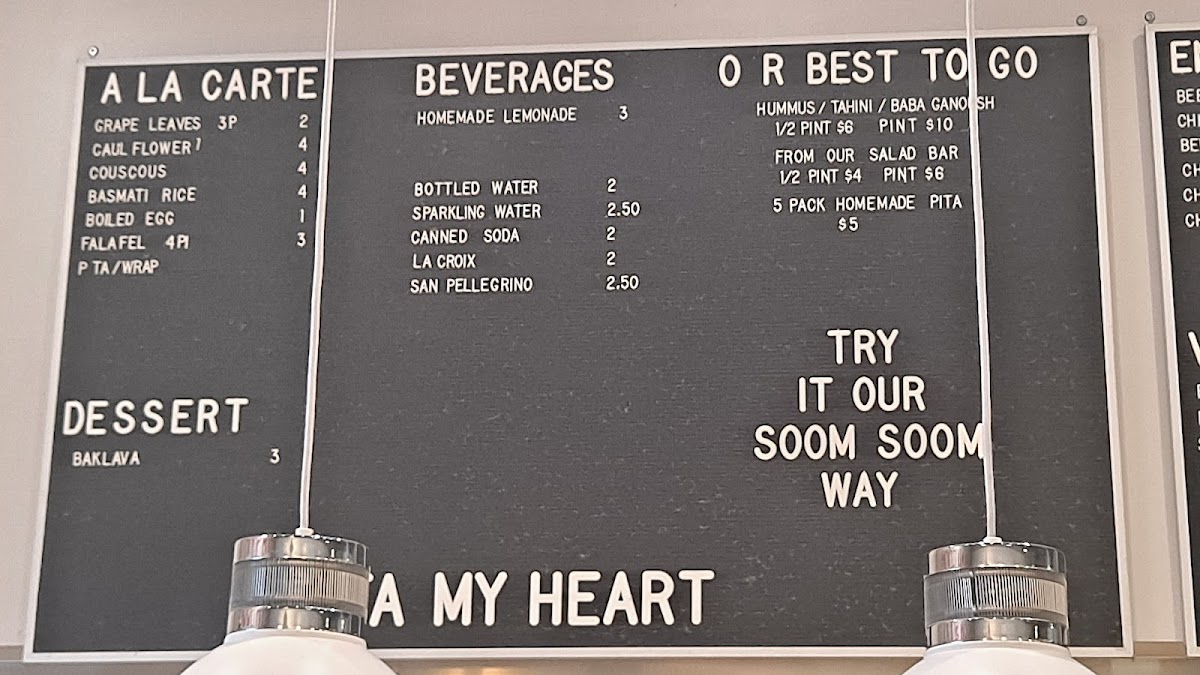 A LA CARTE
GRAPE LEAVES 3P 2
CAULFLOWER 4
COUSCOUS 4
BASMATI RICE 4
BOILED EGG 1
FALAFEL 4PI 3
P TA/WRAP
DESSERT
BAKLAVA 3
BEVERAGES
HOMEMADE LEMONADE 3
BOTTLED WATER 2
SPARKLING WATER 2.50
CANNED SODA 2
LA CROIX 2
SAN PELLEGRINO 2.50
O R BEST TO GO
HUMMUS / TAHINI / BABA GANOUSH
1/2 PINT $6 PINT $10
FROM OUR SALAD BAR
1/2 PINT $4 PINT $6
5 PACK HOMEMADE PITA
$5
TRY
IT OUR
SOOM SOOM
WAY
MY HEART